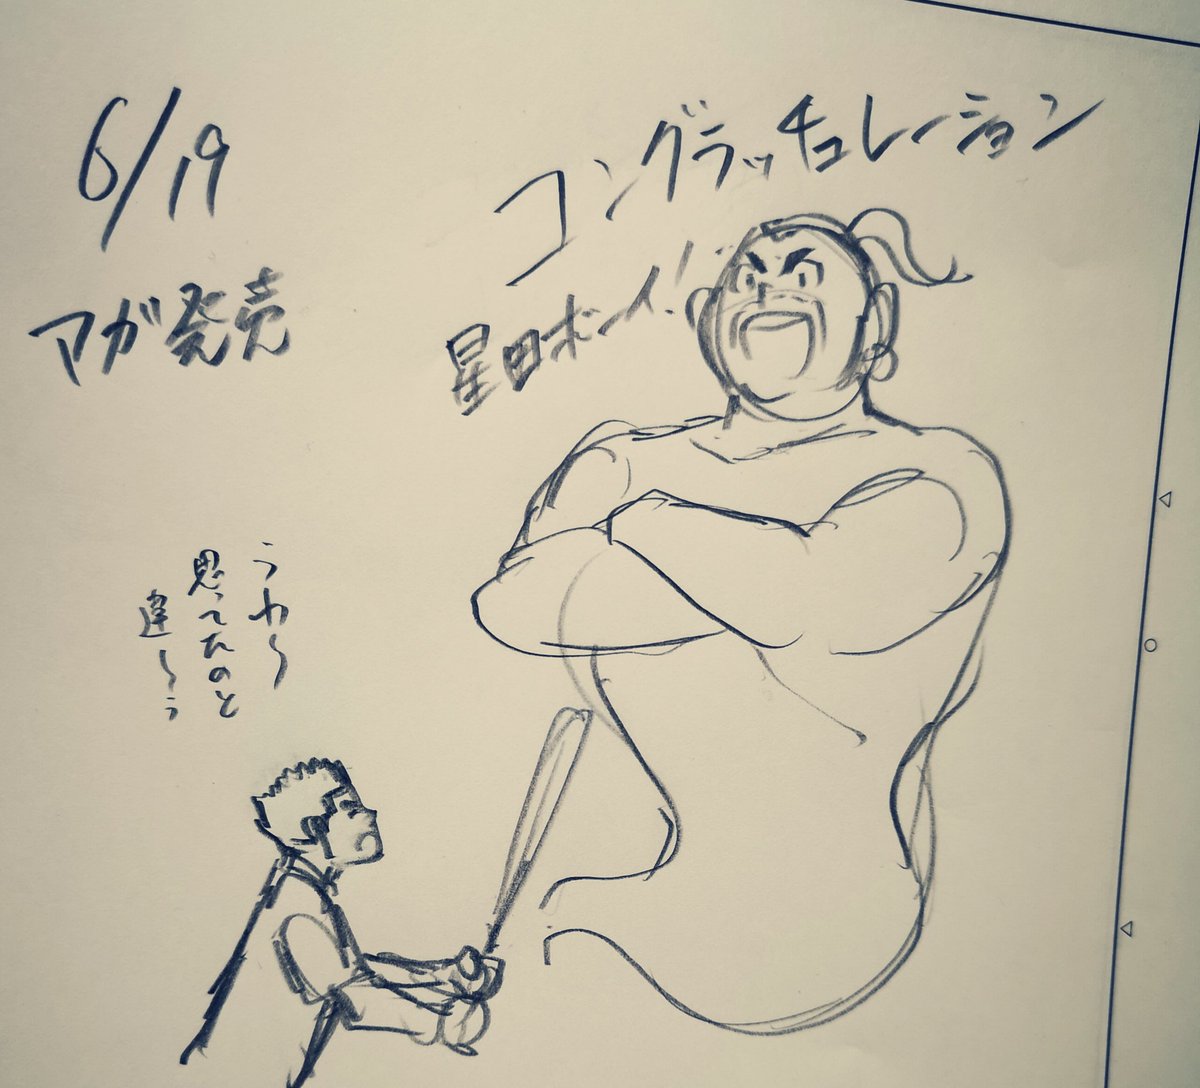 6/19
マガ発売
コングラッチュレーション
星田ボーイ!
うわ〜
思ってたのと
違〜う